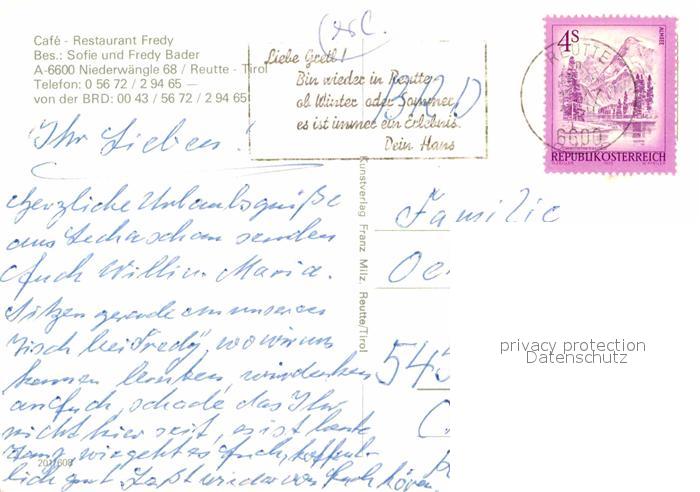 Café - Restaurant Fredy
Bes.: Sofie und Fredy Bader
A-6600 Niederwängle 68 / Reutte - Tirol
Telefon: 0 56 72 / 2 94 65 —
von der BRD: 00 43 / 56 72 / 2 94 65
Liebe Gretl!
Bin wieder in Reutte,
ob Winter oder Sommer,
es ist immer ein Erlebnis.
Dein Hans
BRD
REUTTE
6600
4S
ALMSEE
REPUBLIK ÖSTERREICH
Ihr Lieben!
Herzliche Urlaubsgrüße
aus Lechaschau senden
Euch Willi u. Maria.
Sitzen gerade an unserem
Tisch bei Fredy, wo wir uns
kennen lernten, wir denken
an Euch, schade das Ihr
nicht hier seit, es ist
wie geht es Euch, hoffent-
lich gut. Laßt wieder von Euch hören,
2011608
Kunstverlag Franz Milz, Reutte/Tirol
Familie
Oe
545
privacy protection
Datenschutz